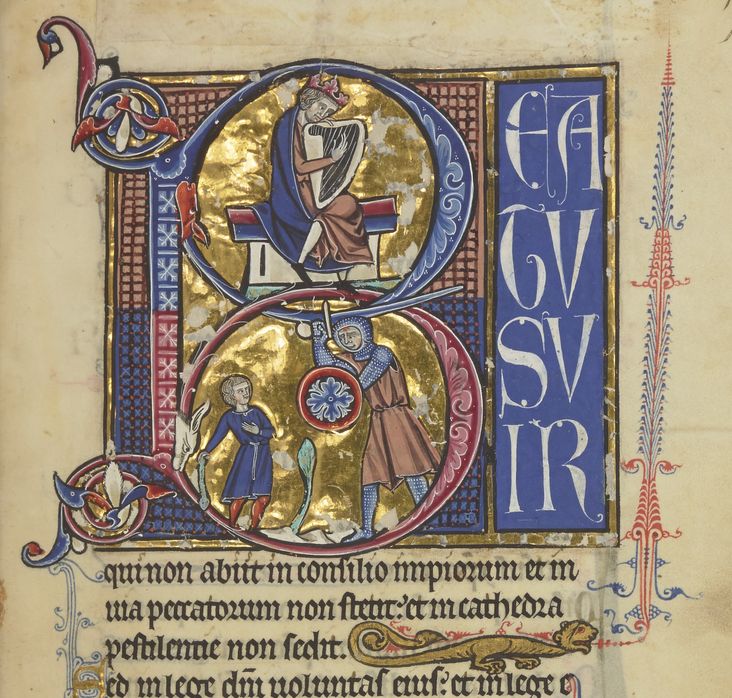 B
EA
TV
SV
IR
qui non abiit in consilio impiorum et in
uia peccatorum non stetit: et in cathedra
pestilentie non sedit.
Sed in lege dm̄ uoluntas eius: et in lege e